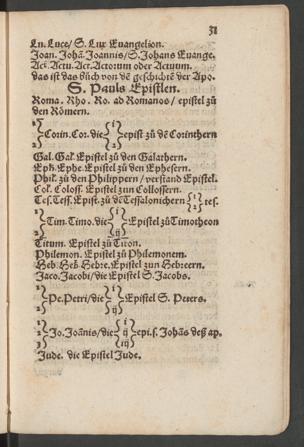 31
Lu. Luce/ S. Lux Euangelion.
Joan. Johā. Joannis/ S. Johans Euange.
Act. Actu. Act. Actorum oder Actuum.
das ist das bůch von dē geschichtē der Apo.
S. Pauls Epistlen.
Roma. Rho. Ro. ad Romanos/ epistel zů
den Römern.
1 2 } Corin. Cor. die { i ij } epist zů dē Corinthern
Gal. Gak. Epistel zů den Galathern.
Eph. Ephe. Epistel zů den Ephesern.
Phil. zů den Philippern/ verstand Epistel.
Col. Coloss. Epistel zun Collossern.
Tes. Tess. Epist. zů dē Tessalonichern { 1 2 } tes.
1 2 } Tim. Timo. die { i ij } Epistel zů Timotheon
Titum. Epistel zů Titon.
Philemon. Epistel zů Philemonem.
Heb. Heb. Hebre. Epistel zun Hebreern.
Jaco. Jacobi/ die Epistel S. Jacobs.
1 2 } Pe. Petri/ die { i ij } Epistel S. Peters.
1 2 3 } Jo. Joānis/ die { i ij iij } epi. s. Johās deß ap.
Jude. die Epistel Jude.